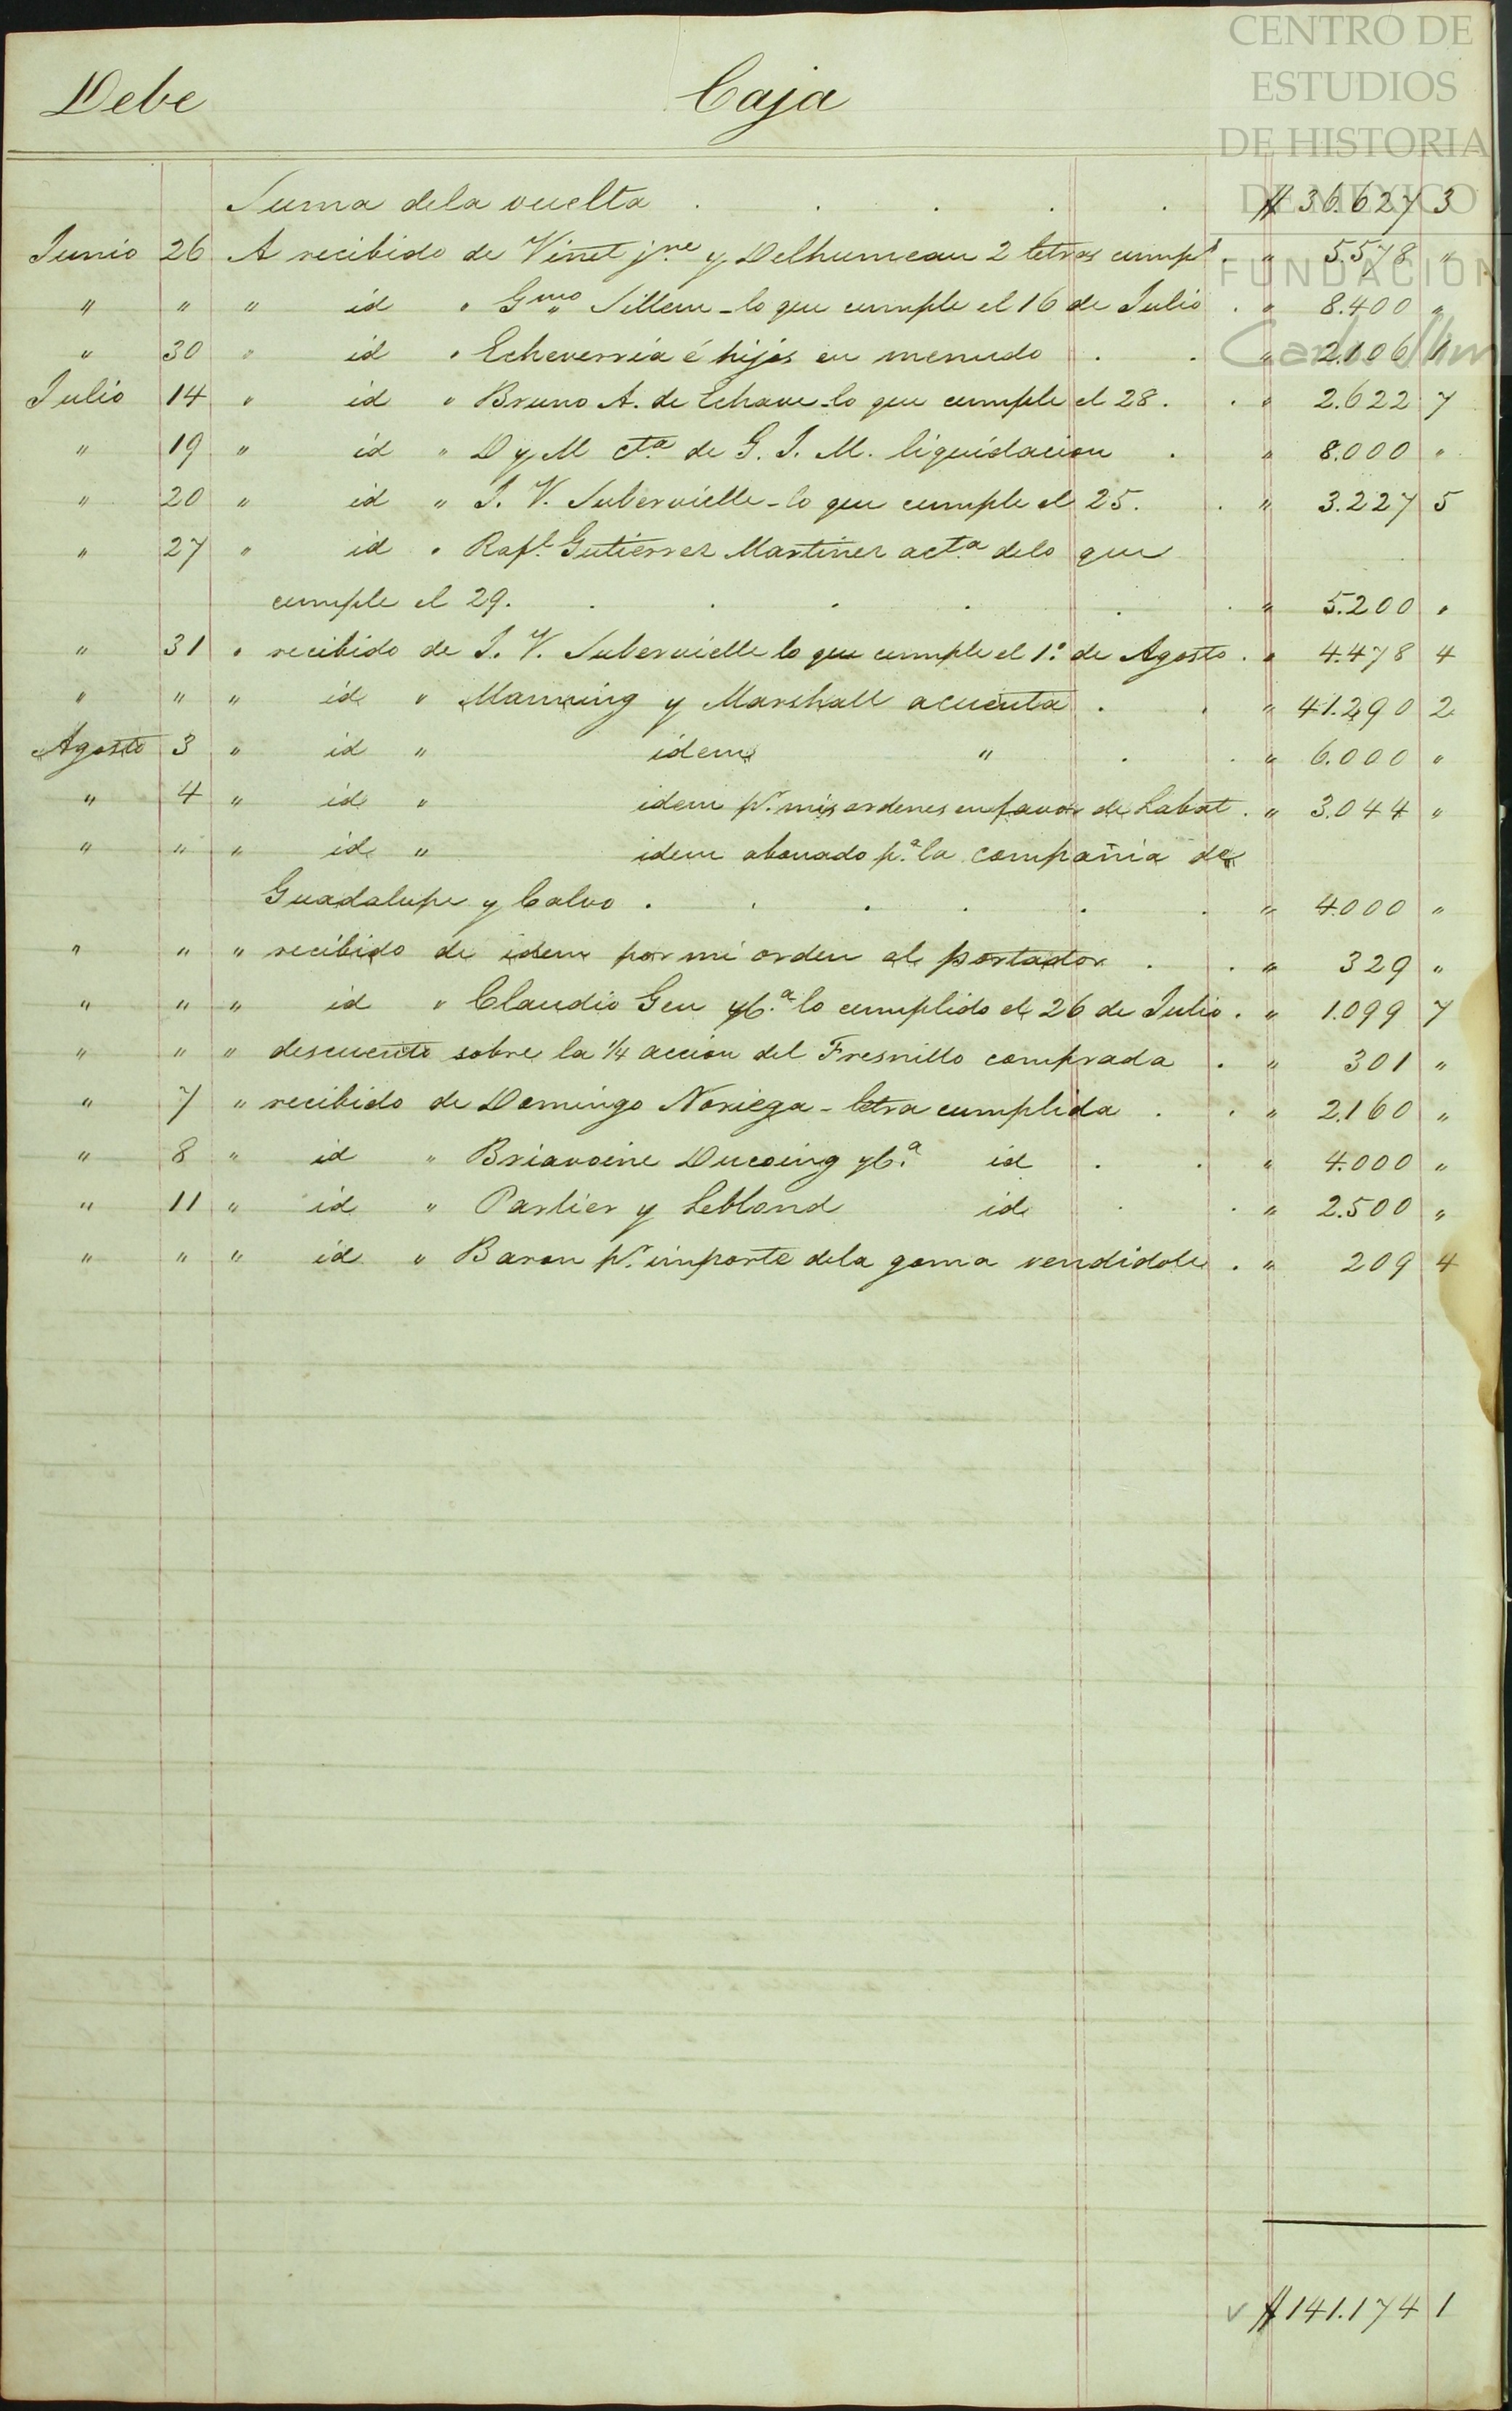 CENTRO DE
ESTUDIOS
DE HISTORIA
DE MEXICO
FUNDACION
Debe Caja
Suma dela vuelta . . . . . $ 36.627 3
Junio 26 A recibido de Vinet j.ne y Delhumeau 2 letras cumps. " 5.578 "
" " " id " Gmo Sillem - lo que cumple el 16 de Julio . " 8.400 "
" 30 " id " Echeverria é hijos en menudo . . " 2.106 1
Julio 14 " id " Bruno A. de Echave - lo que cumple el 28 . . " 2.622 7
" 19 " id " D y M cta de G. I. M. liquidacion . " 8.000 "
" 20 " id " J. V. Subervielle - lo que cumple el 25 . . " 3.227 5
" 27 " id " Rafl. Gutierrez Martinez acta delo que
cumple el 29 . . . . . . . " 5.200 "
" 31 " recibido de J. V. Subervielle lo que cumple el 1.º de Agosto . " 4.478 4
" " " id " Manning y Marshall acuenta . . " 41.290 2
Agosto 3 " id " idem " . . " 6.000 "
" 4 " id " idem pr. mis ordenes en favor de Labat . " 3.044 "
" " " id " idem abonado p.a la compañia de
Guadalupe y Calvo . . . . . . " 4.000 "
" " " recibido de idem por mi orden al portador . . " 329 "
" " " id " Claudio Gen yC.a lo cumplido el 26 de Julio . " 1.099 7
" " " descuento sobre la 1/4 accion del Fresnillo comprada . " 301 "
" 7 " recibido de Domingo Noriega - letra cumplida . . " 2.160 "
" 8 " id " Briavoine Ducoing yC.a id . . " 4.000 "
" 11 " id " Parlier y Leblond id . . " 2.500 "
" " " id " Baron pr. importe dela goma vendidole . " 209 4
$ 141.174 1